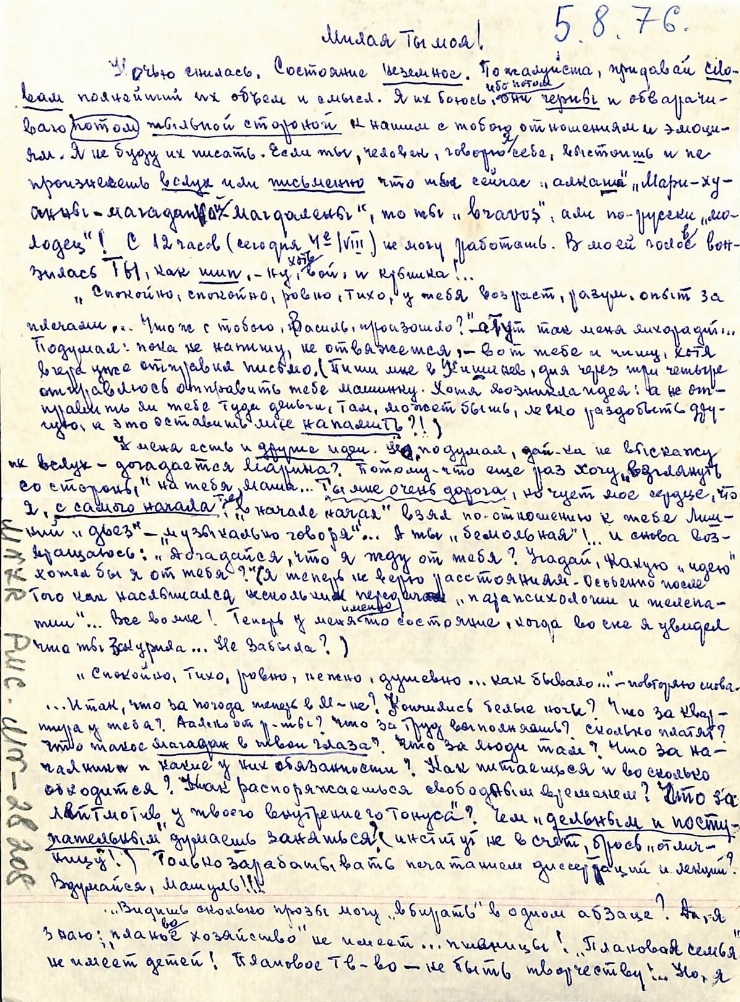 5.8.76.
Милая ты моя!
Ночью снилась. Состояние неземное. Пожалуйста, придавай сло-
вам полнейший их объем и смысл. Я их боюсь, ибо потом они червы и обварачи-
ваю потом тыльной стороной к нашим с тобою отношениям и эмоци-
ям. Я не буду их писать. Если ты, человек, говорю я себе, выстоишь и не
произнесешь вслух или письменно что ты сейчас "алкаш" "Мари-ху-
аны – магадан Магдалены", то ты "bravos", али по-русски "мо-
лодец"! С 12 часов (сегодня 4е/VIII) не могу работать. В моей голове вон-
зилась ТЫ, как шип, – ну, хоть вой, и крышка!..
"Спокойно, спокойно, ровно, тихо, у тебя возраст, разум, опыт за
плечами... Что ж с тобою, Василь, произошло?" – а тут так меня лихорадит...
Подумал: пока не напишу, не отвяжется, – вот тебе и пишу, хотя
вчера уже отправил письмо. (Пиши мне в Кишинев, дня через три четыре
отправляюсь отправить тебе машинку. Хотя возникла идея: а не от-
править ли тебе туда деньги, там, может быть, легко раздобыть дру-
гую, а это оставишь мне на память?!)
У меня есть и другие идеи. Но, подумал, дай-ка не выскажу
их вслух – догадается Марина? Потому-что еще раз хочу "взглянуть
со стороны" на тебя, Маша... Ты мне очень дорога, но чует мое сердце, что
я, с самого начала, "в начале начал" взял по-отношению к тебе лиш-
ний "диез" – "музыкально говоря"... А ты "бемольная"!.. и снова воз-
вращаюсь: "Догадайся, что я жду от тебя? Угадай, какую "идею"
хотел бы я от тебя?" (Я теперь не верю расстояниям. Особенно после
того как наслышался нескольких передач "парапсихологии и телепа-
тии"... Все во мне! Теперь у меня именно то состояние, когда во сне я увидел
что ты закурила... Не забыла?)
"Спокойно, тихо, ровно, нежно, душевно... как бывало..." – повторяю снова.
...Итак, что за погода теперь в М-не? Кончились белые ночи? Что за квар-
тира у тебя? Далеко от р-ты? Что за труд выполняешь? Сколько платят?
Что такое Магадан в твои глаза? Что за люди там? Что за на-
чальники и какие у них обязанности? Как питаешься и во сколько
обходится? Как распоряжаешься свободным временем? Что за
лейтмотив у твоего внутреннего тонуса"? Чем "дельным и посту-
пательным" думаешь заняться? (институт не в счет, брось "отлич-
ницу"!) Только зарабатывать печатанием диссертаций и лекций?
Вдумайся, Машуль!!!
...Видишь сколько прозы могу "вбирать" в одном абзаце? Да, я
знаю: плановое хозяйство" не имеет... пшеницы! "Плановая семья"
не имеет детей! Плановое тв-во – не быть творчеству!.. Но, я